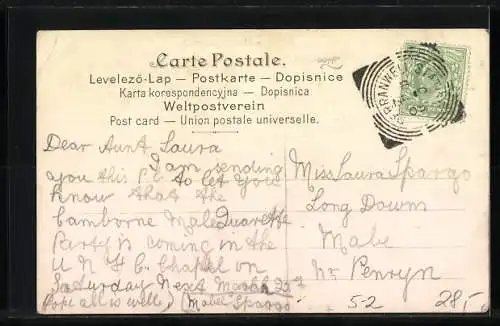 Carte Postale.
Levelező-Lap — Postkarte — Dopisnice
Karta korespondencyjna — Dopisnica
Weltpostverein
Post card — Union postale universelle.
Dear Aunt Laura
I am sending
you this P.C to let you
know that the
Camborne Male Quarette
Party is coming in the
U M F C. Chapel on
Saturday Next March 23rd
(hope all is well) Mabel Spargo
Miss Laura Spargo
Long Downs
Mabe
Nr Penryn
5-2
28,-